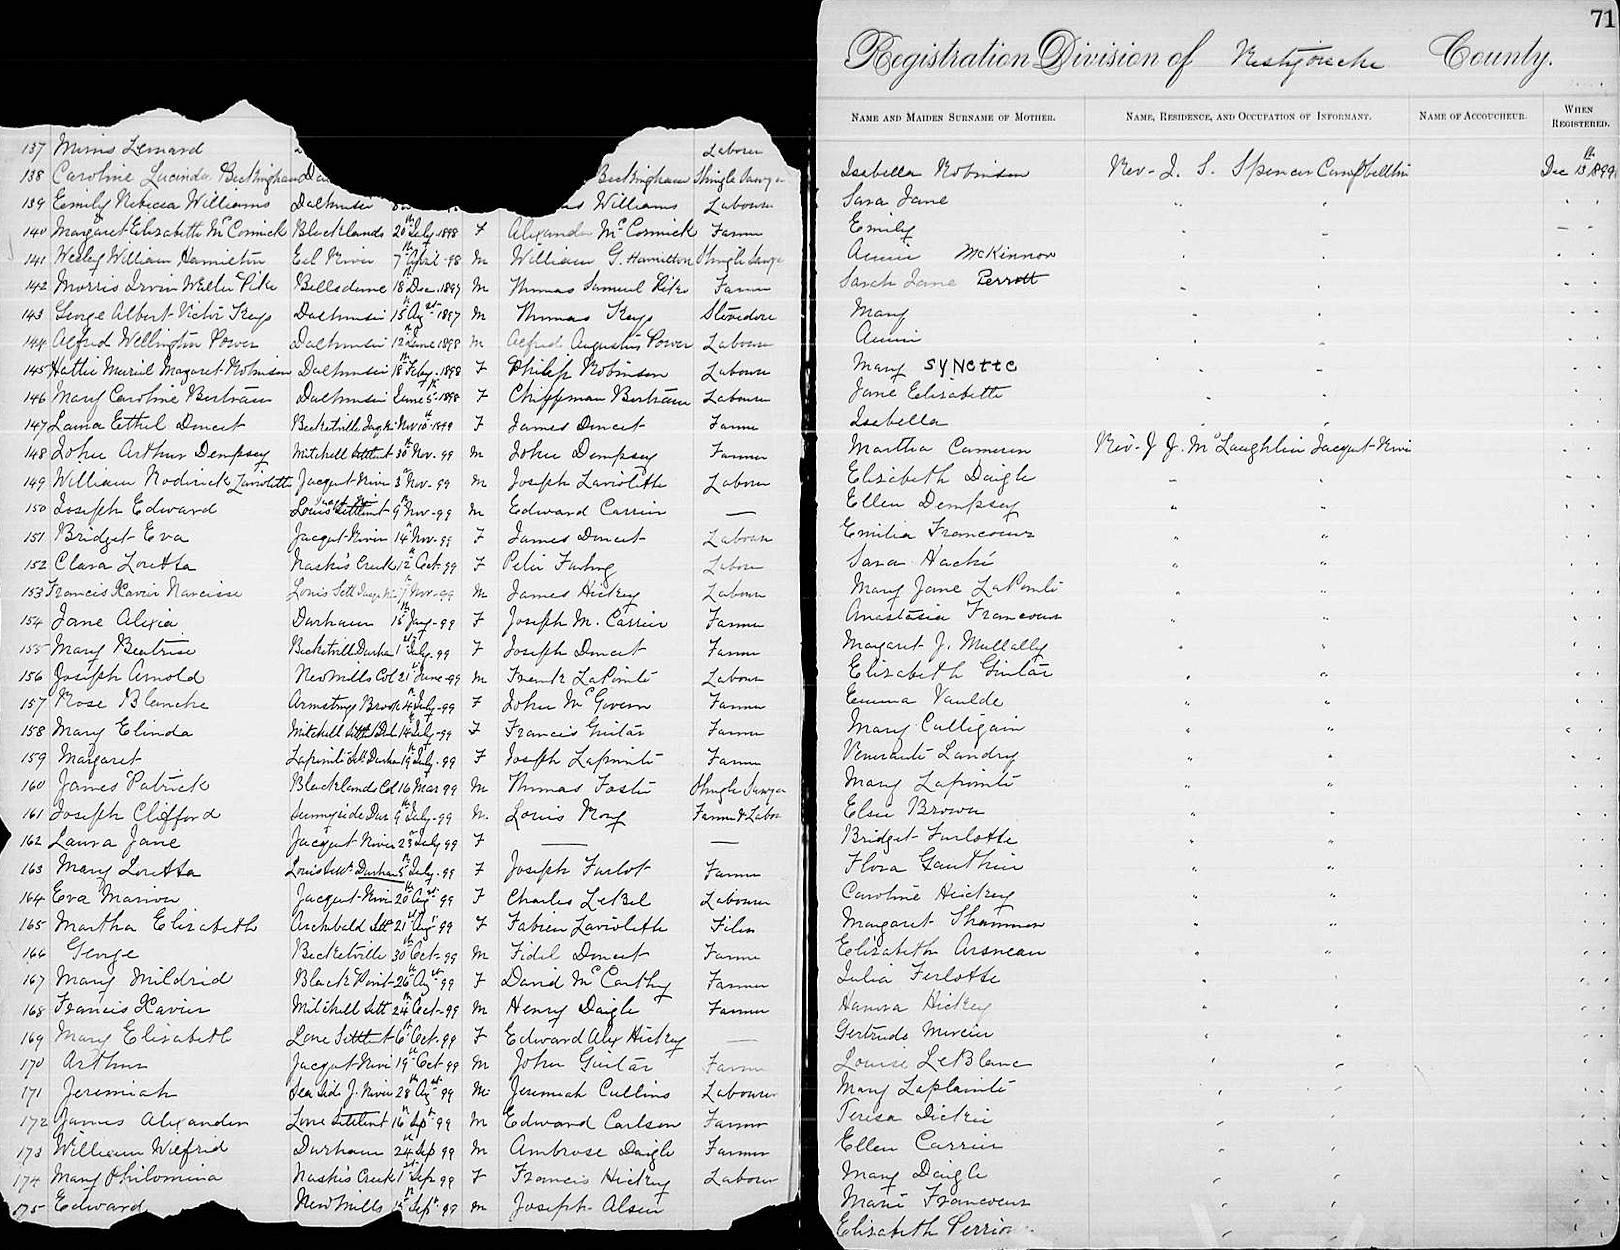 71
Registration Division of Restigouche County.
NAME AND MAIDEN SURNAME OF MOTHER. NAME, RESIDENCE, AND OCCUPATION OF INFORMANT. NAME OF ACCOUCHEUR. WHEN REGISTERED.
137 Minis Lenard Labourer
138 Caroline Lucinda Beckingham Beckingham Shingle Sawyer Isabella Robinson Rev. J. S. Spencer Campbellton Dec 13th 1899
139 Emily Rebecca Williams Dalhousie Williams Labourer Sara Jane
140 Margaret Elizabeth McCormick Blacklands 20th July 1898 F Alexander McCormick Farmer Emily
141 Wesley William Hamilton Eel River 7th April 98 M William G. Hamilton Shingle Sawyer Annie McKinnon
142 Morris Irvin Wellis Pike 18 Dec. 1897 M Thomas Samuel Pike Farmer Sarah Jane Perrott
143 George Albert Victor Keys Dalhousie 15 Augst 1897 M Thomas Keys Stevedore Mary
144 Alfred Wellington Power Dalhousie 12th June 1898 M Alfred Augustus Power Labourer Annie
145 Hattie Muriel Margaret Robinson Dalhousie 18th Feby. 1898 F Philip Robinson Labourer Mary SyNette
146 Mary Caroline Bertram Dalhousie June 5th 1898 F Chippman Bertram Labourer Jane Elizabeth
147 Laura Ethel Doucet Becketville Jaqt Ri Nov 10th 1899 F James Doucet Farmer Isabella
148 John Arthur Dempsey Mitchell Settlemt 30th Nov. 99 M John Dempsey Farmer Martha Cameron Rev. J. J. McLaughlin Jacquet River
149 William Roderick Laviolette Jacquet River 3rd Nov. 99 M Joseph Laviolette Labourer Elizabeth Daigle
150 Joseph Edward Louis Settlemt 9th Nov. 99 M Edward Carrier — Ellen Dempsey
151 Bridget Eva Jacquet River 14th Nov. 99 F James Doucet Labourer Emilia Francoeur
152 Clara Loretta Nashs Creek 12th Oct. 99 F Peter Furlong Labourer Sara Haché
153 Francis Xavier Narcisse Louis Sett Jaqt Ri 7th Nov. 99 M James Hickey Labourer Mary Jane LaPointe
154 Jane Alixia Durham 15th Jany. 99 F Joseph M. Carrier Farmer Anastasia Francoeur
155 Mary Beatrice Becketvill Durham 1st July. 99 F Joseph Doucet Farmer Margaret J. Mullally
156 Joseph Arnold New Mills Col 21st June. 99 M Frank LaPointe Labourer Elizabeth Guitar
157 Rose Blanche Armstrong Brook 4th July. 99 F John McGovern Farmer Emma
158 Mary Elinda Mitchell Settl Dur 14th July. 99 F Francis Guitar Farmer Mary Culligain
159 Margaret Lapointe Sett Durham 19th July. 99 F Joseph Lapointe Farmer Landry
160 James Patrick Blacklands Col 16 Mar 99 M Thomas Foster Shingle Sawyer Mary Lapointe
161 Joseph Clifford Sunnyside Dur 9th July. 99 M. Louis Roy Farmer & Labor Elsie Brown
162 Laura Jane Jacquet River 23rd July 99 F — — Bridget Furlotte
163 Mary Loretta Durham 5th July. 99 F Joseph Furlot Farmer Flora Gauthier
164 Eva Marion Jacquet River 20th Augst 99 F Charles LeBel Labourer Caroline Hickey
165 Martha Elizabeth Archibald Sett 21st Augst 99 F Fabien Laviolette Filer Margaret Shannon
166 George Becketville 30th Oct. 99 M Fidel Doucet Farmer Elizabeth Arsneau
167 Mary Mildrid Black Point 26th Augst 99 F David McCarthy Farmer Julia Ferlotte
168 Francis Xavier Mitchell Sett 24th Oct. 99 M Henry Daigle Farmer Hanora Hickey
169 Mary Elizabeth Lone Settlemt 6th Oct. 99 F Edward Alex Hickey — Gertrude Mercier
170 Arthur Jacquet River 19th Oct 99 M John Guitar Farmer Louise LeBlanc
171 Jeremiah Sea Sid J. River 28th Augst 99 M. Jeremiah Cullins Labourer Mary Laplainte
172 James Alexander Lone Settlemt 16th Sept 99 M Edward Carlson Farmer Teresa Dickie
173 William Wilfrid Durham 24th Sep 99 M Ambrose Daigle Farmer Ellen Carrier
174 Mary Philomina Nashs Creek 1st Sep 99 F Francis Hickey Labourer Mary Daigle
175 Edward New Mills Sept 99 M Joseph Marie Francoeur
Elizabeth